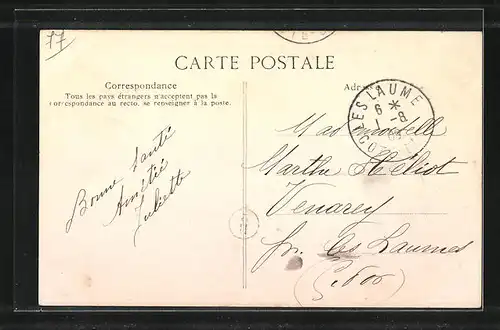 77
CARTE POSTALE
Correspondance
Tous les pays étrangers n'acceptent pas la
correspondance au recto, se renseigner à la poste.
LES LAUMES
6 *
1 -8
CÔTE
Bonne Santé
Amitié
Juliette
Mademoiselle
Marthe Héliot
Venarey
par les Laumes
(C. d'or)